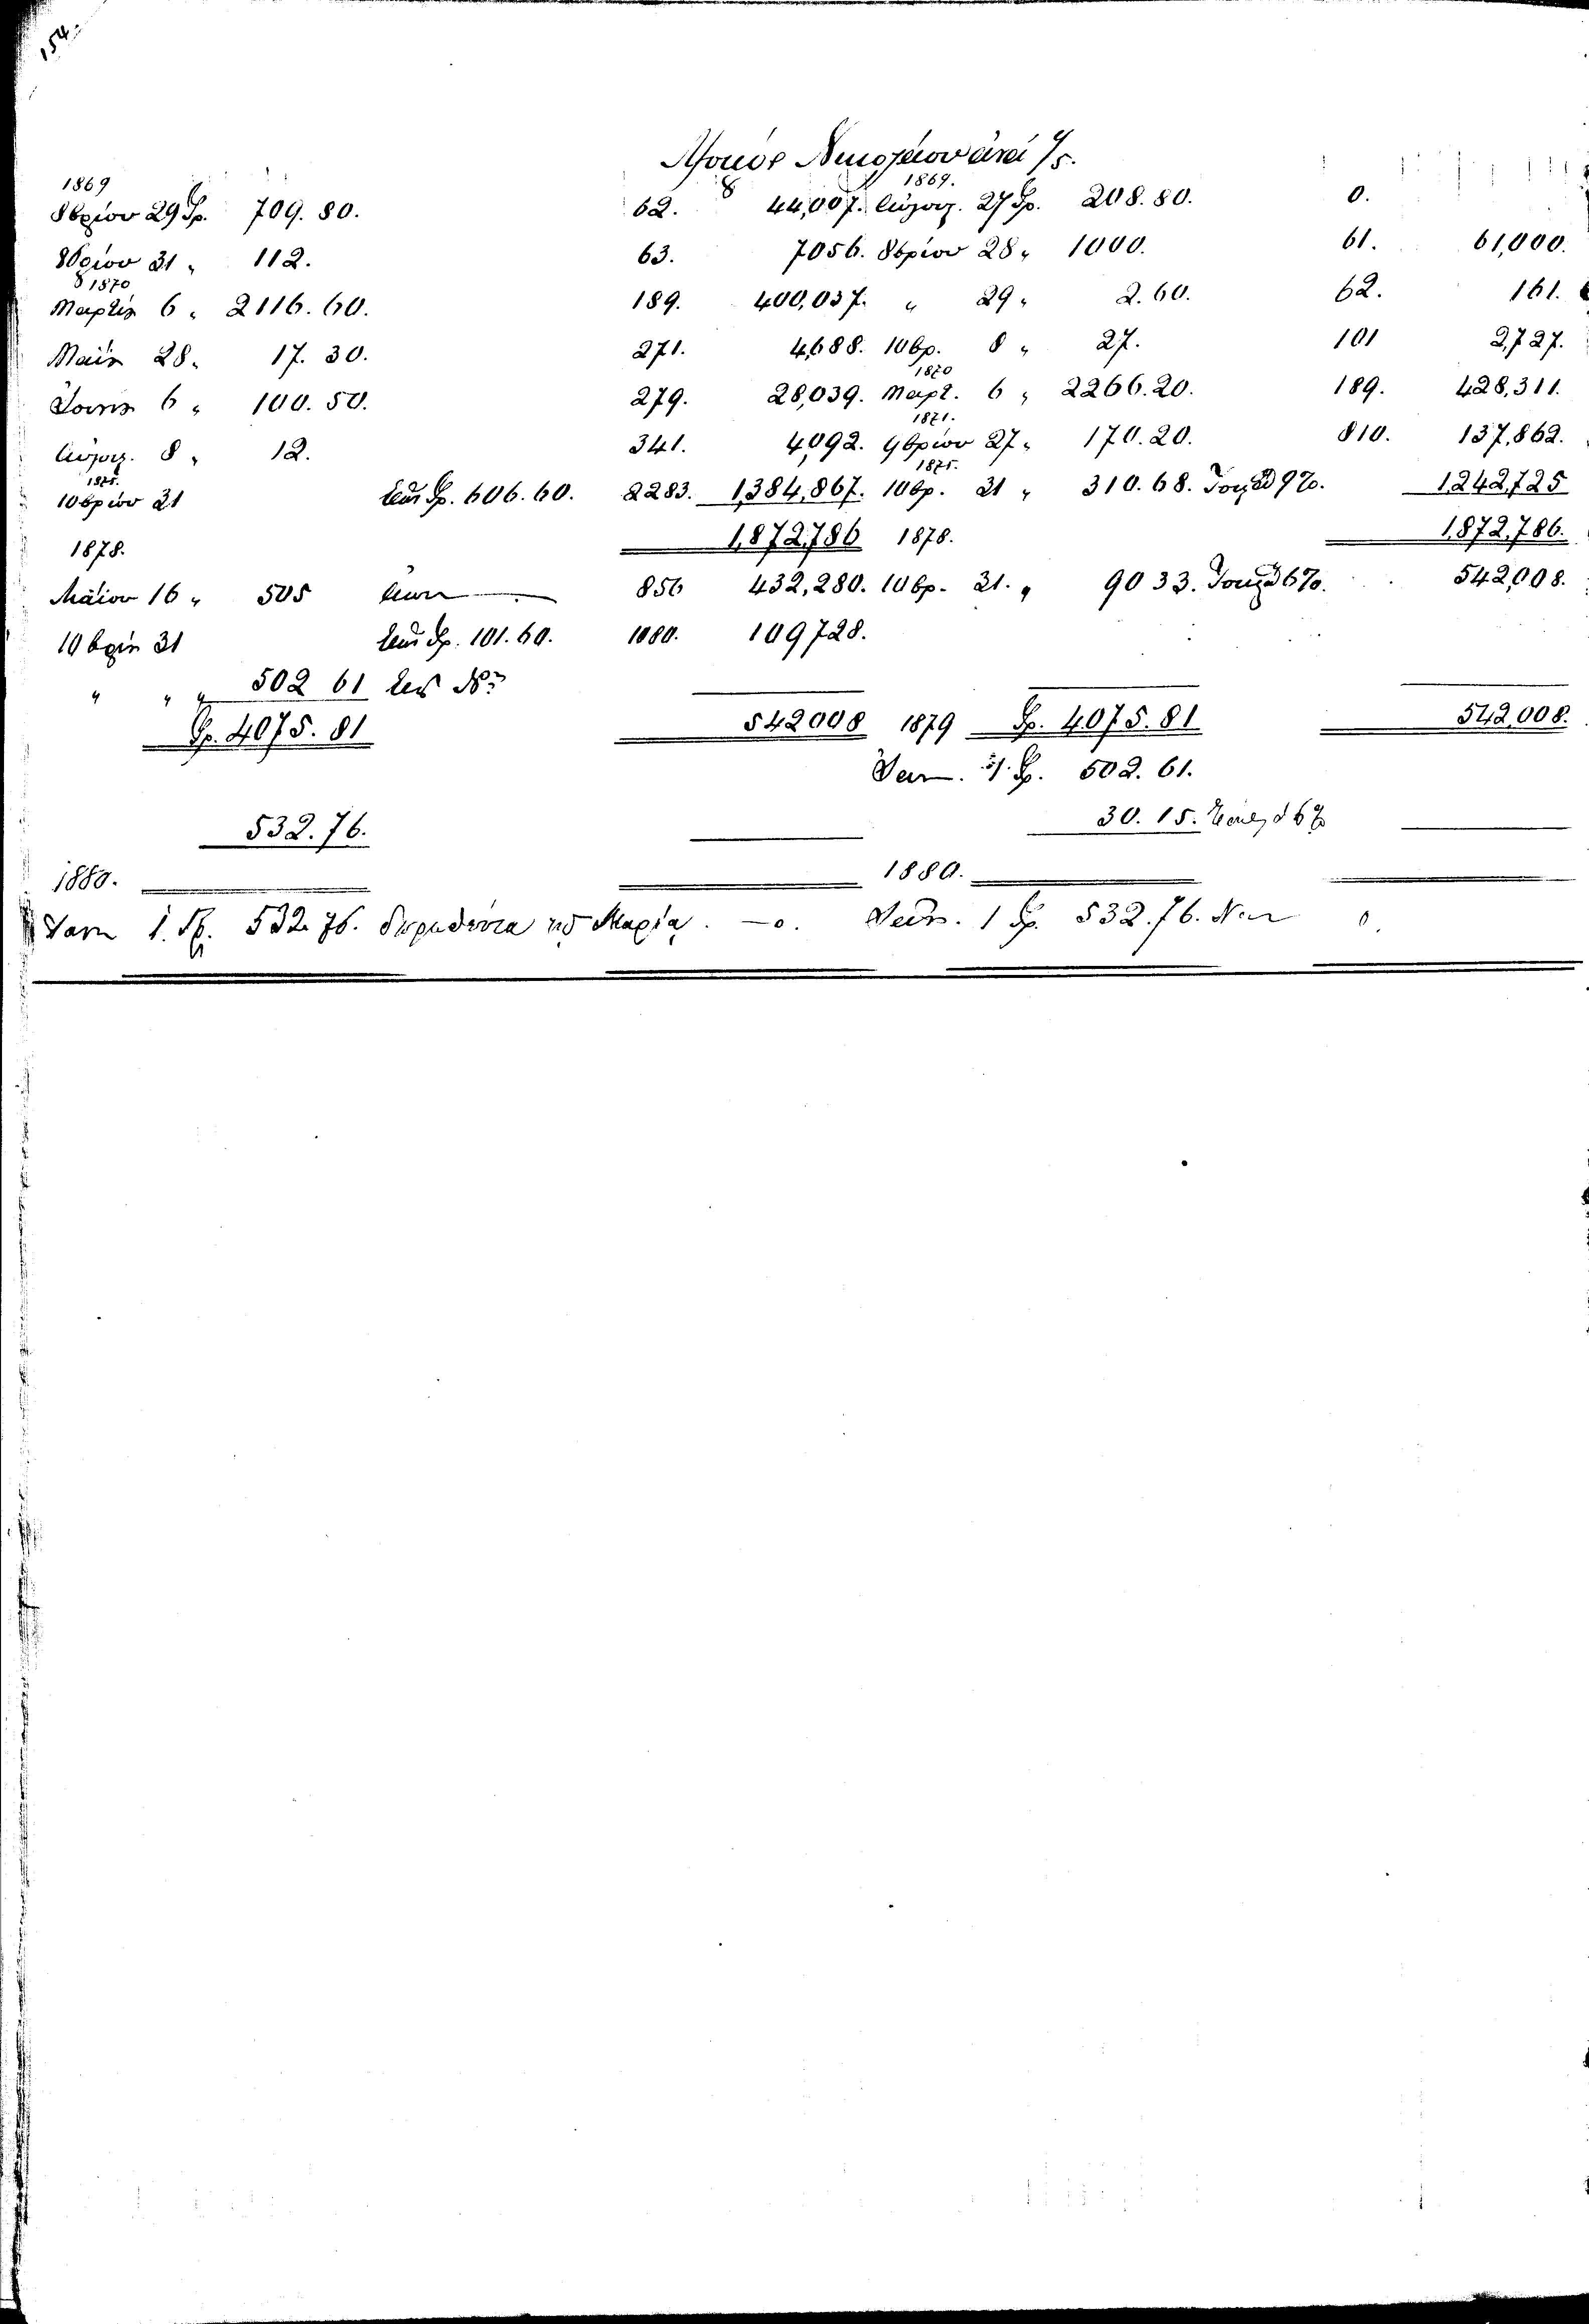 154.
Νικολάου
1869 1869.
8βρίου 29 Δρ. 709. 80. 62. 44,007. Αύγουσ. 27 Δρ. 208. 80. 0.
8βρίου 31 " 112. 63. 7056. 8βρίου 28 " 1000. 61. 61,000.
1870
Μαρτίου 6 " 2116. 60. 189. 400,037. " 29 " 2. 60. 62. 161.
Μαΐου 28 " 17. 30. 271. 4,688. 10βρ. 8 " 27. 101 2,727.
1870
Ιουνίου 6 " 100. 50. 279. 28,039. Μαρτ. 6 " 2266. 20. 189. 428,311.
1871.
Αύγουσ. 8 " 12. 341. 4,092. 9βρίου 27 " 170. 20. 810. 137,862.
1875. 1875.
10βρίου 31 Δρ. 606. 60. 2283. 1,384,867. 10βρ. 31 " 310. 68. 9%. 1,242,725
1878. 1,872,786 1878. 1,872,786.
Μαΐου 16 " 505 856 432,280. 10βρ. 31. " 90 33. 6%. 542,008.
10βρίου 31 Δρ. 101. 60. 1080. 109728.
" " " 502 61
Δρ. 4075. 81 542008 1879 Δρ. 4075. 81 542,008.
Ιαν. 1. Δρ. 502. 61.
532. 76. 30. 15. 6%
1880. 1880.
Ιαν 1. Δρ. 532. 76. Μαρία. —0. Ιαν. 1 Δρ. 532. 76. 0.